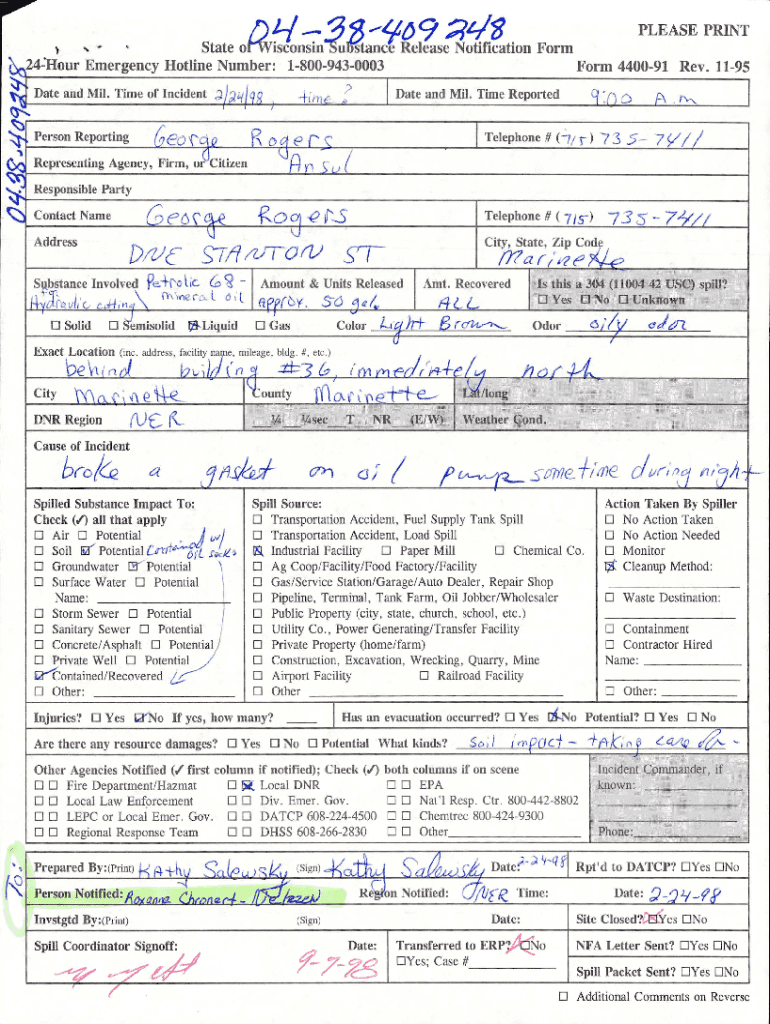 04-38-409248
PLEASE PRINT
State of Wisconsin Substance Release Notification Form
24-Hour Emergency Hotline Number: 1-800-943-0003
Form 4400-91 Rev. 11-95
04-38-409248
Date and Mil. Time of Incident 2/24/98, time?
Date and Mil. Time Reported 9:00 A.m
Person Reporting George Rogers
Telephone # (715) 735-7411
Representing Agency, Firm, or Citizen Ansul
Responsible Party
Contact Name George Rogers
Telephone # (715) 735-7411
Address ONE STANTON ST
City, State, Zip Code Marinette
Substance Involved Petrolic 68 - mineral oil
for Hydraulic cutting
Amount & Units Released approx. 50 gal.
Amt. Recovered ALL
Is this a 304 (11004 42 USC) spill?
☐ Yes ☐ No ☐ Unknown
☐ Solid ☐ Semisolid ☒ Liquid ☐ Gas Color Light Brown Odor oily odor
Exact Location (inc. address, facility name, mileage, bldg. #, etc.)
behind building #36, immediately north
City Marinette
County Marinette
Lat/long
DNR Region NER
¼ ¼sec T NR (E/W)
Weather Cond.
Cause of Incident
broke a gasket on oil pump sometime during night
Spilled Substance Impact To:
Check (✓) all that apply
☐ Air ☐ Potential
☐ Soil ☑ Potential Contained w/ oil socks
☐ Groundwater ☑ Potential
☐ Surface Water ☐ Potential
Name:
☐ Storm Sewer ☐ Potential
☐ Sanitary Sewer ☐ Potential
☐ Concrete/Asphalt ☐ Potential
☐ Private Well ☐ Potential
☑ Contained/Recovered
☐ Other:
Spill Source:
☐ Transportation Accident, Fuel Supply Tank Spill
☐ Transportation Accident, Load Spill
☒ Industrial Facility ☐ Paper Mill ☐ Chemical Co.
☐ Ag Coop/Facility/Food Factory/Facility
☐ Gas/Service Station/Garage/Auto Dealer, Repair Shop
☐ Pipeline, Terminal, Tank Farm, Oil Jobber/Wholesaler
☐ Public Property (city, state, church, school, etc.)
☐ Utility Co., Power Generating/Transfer Facility
☐ Private Property (home/farm)
☐ Construction, Excavation, Wrecking, Quarry, Mine
☐ Airport Facility ☐ Railroad Facility
☐ Other
Action Taken By Spiller
☐ No Action Taken
☐ No Action Needed
☐ Monitor
☒ Cleanup Method:
☐ Waste Destination:
☐ Containment
☐ Contractor Hired
Name:
☐ Other:
Injuries? ☐ Yes ☑ No If yes, how many?
Has an evacuation occurred? ☐ Yes ☒ No Potential? ☐ Yes ☐ No
Are there any resource damages? ☐ Yes ☐ No ☐ Potential What kinds? Soil impact - taking care
Other Agencies Notified (✓ first column if notified); Check (✓) both columns if on scene
☐ ☐ Fire Department/Hazmat ☐ ☒ Local DNR ☐ ☐ EPA
☐ ☐ Local Law Enforcement ☐ ☐ Div. Emer. Gov. ☐ ☐ Nat'l Resp. Ctr. 800-442-8802
☐ ☐ LEPC or Local Emer. Gov. ☐ ☐ DATCP 608-224-4500 ☐ ☐ Chemtrec 800-424-9300
☐ ☐ Regional Response Team ☐ ☐ DHSS 608-266-2830 ☐ ☐ Other
Incident Commander, if
known:
Phone:
To:
Prepared By:(Print) KAthy Salewsky (Sign) Kathy Salewsky Date: 2-24-98
Rpt'd to DATCP? ☐Yes ☐No
Person Notified: Roxanne Chronert-
Region Notified: NER Time:
Date: 2-24-98
Invstgtd By:(Print) (Sign) Date:
Site Closed? ☒Yes ☐No
Spill Coordinator Signoff: Date: 9-7-98
Transferred to ERP? ☒No
☐Yes; Case #
NFA Letter Sent? ☐Yes ☐No
Spill Packet Sent? ☐Yes ☐No
☐ Additional Comments on Reverse